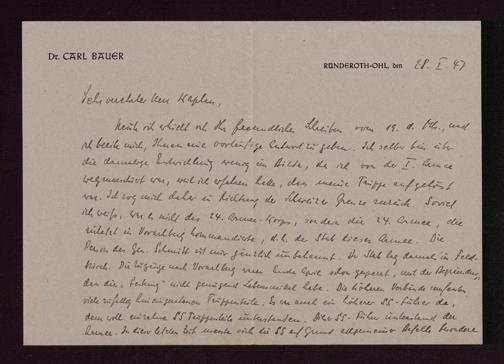 Dr. CARL BAUER
RÜNDEROTH-OHL, den 28. I. 47
Sehr verehrter Herr Kaplan,
Heute erhielt ich Ihr freundliches Schreiben vom 19. d. Mts., und
ich beeile mich, Ihnen eine vorläufige Antwort zu geben. Ich selbst bin über
die damalige Entwicklung wenig im Bilde, da ich von der I. Armee
wegmarschiert war, weil ich erfahren hatte, dass meine Truppe aufgelöst
war. Ich zog mich daher in Richtung der Schweizer Grenze zurück. Soviel
ich weiss, war es nicht das 24. Armee-Korps, sondern die 24. Armee, die
zuletzt in Vorarlberg kommandierte, d.h. der Stab dieser Armee. Die
Person des Gen. Schmidt ist mir gänzlich unbekannt. Der Stab lag damals in Feld-
kirch. Die Zugänge nach Vorarlberg waren Ende April schon gesperrt, mit der Begründung,
dass die „Festung" nicht genügend Lebensmittel habe. Die höheren Verbände umfassten
viele zufällig hineingeratene Truppenteile. Es war auch ein höherer SS-Führer da,
dem wohl einzelne SS Truppenteile unterstanden. Der SS-Führer unterstand der
Armee. In dieser letzten Zeit machte sich die SS auf Grund allgemeiner Befehle besonders